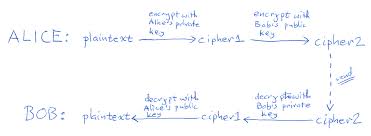 encrypt with Alice's private key
encrypt with Bob's public key
ALICE: plaintext cipher1 cipher2
send
decrypt with Alice's public key
decrypt with Bob's private key
BOB: plaintext cipher1 cipher2